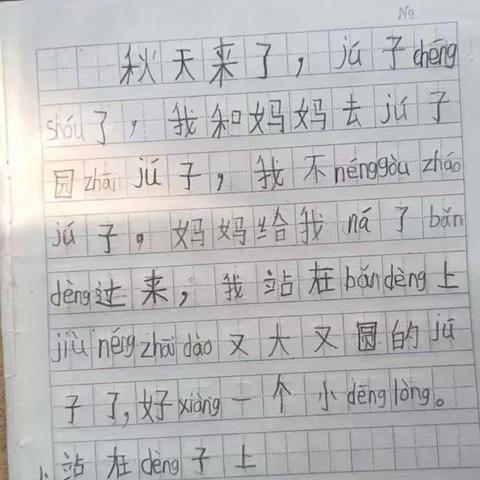 No
秋天来了，jú子chéng
shóu了，我和妈妈去jú子
园zhāi jú子，我不nénggòu zháo
jú子，妈妈给我ná了bǎn
dèng过来，我站在bǎndèng上
jiù néng zhāi dào又大又圆的jú
子了，好xiàng一个小dēnglòng。
站在dèng子上